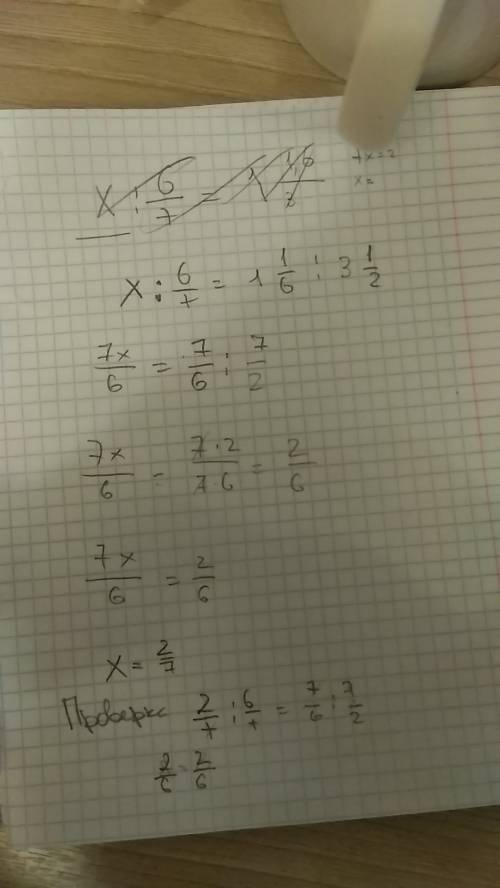 x : 6/7 =
7x = 2
x =
x : 6/7 = 1 1/6 : 3 1/2
7x/6 = 7/6 : 7/2
7x/6 = 7·2/7·6 = 2/6
7x/6 = 2/6
x = 2/7
Проверка 2/7 : 6/7 = 7/6 : 7/2
2/6 = 2/6